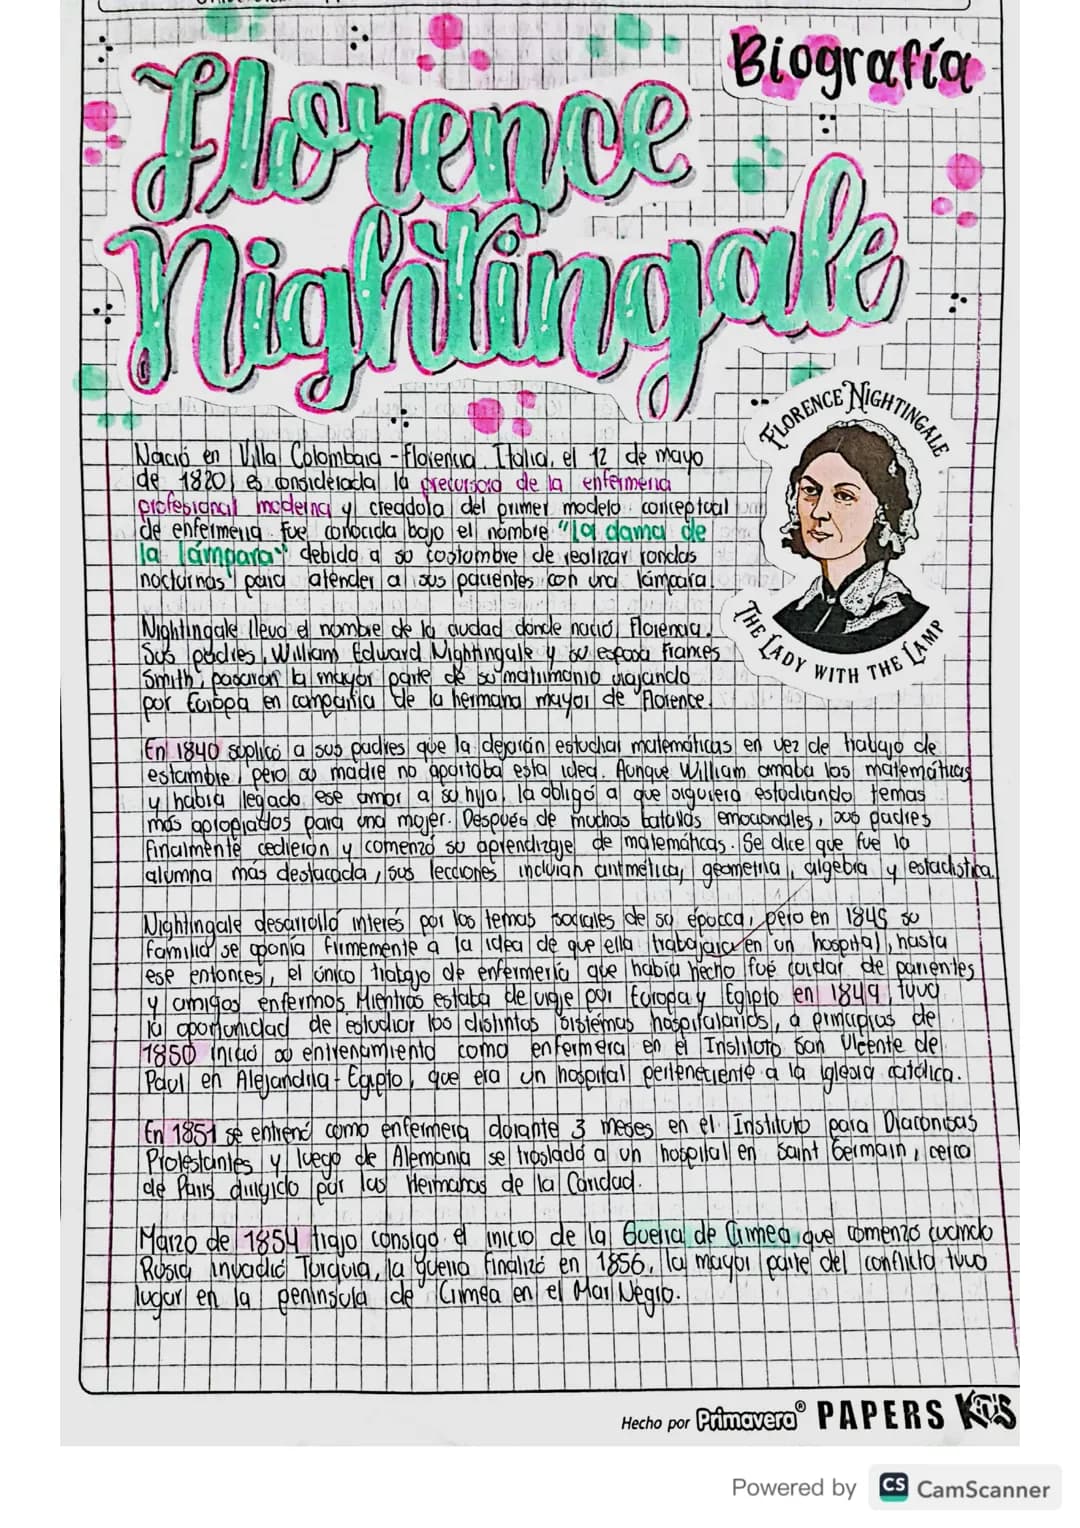 Biografía
Florence
Nightingale
FLORENCE NIGHTINGALE
THE LADY WITH THE LAMP
Nació en Villa Colombaia - Florencia, Italia, el 12 de mayo
de 1820, es considerada la precursora de la enfermería
profesional moderna y creadora del primer modelo conceptual
de enfermería. Fue conocida bajo el nombre "La dama de
la lámpara" debido a su costumbre de realizar rondas
nocturnas para atender a sus pacientes con una lámpara.
Nightingale lleva el nombre de la ciudad donde nació, Florencia.
Sus padres, William Edward Nightingale y su esposa Frances
Smith, pasaron la mayor parte de su matrimonio viajando
por Europa en compañía de la hermana mayor de Florence.
En 1840 suplicó a sus padres que la dejarán estudiar matemáticas en vez de trabajo de
estambre, pero su madre no aportaba esta idea. Aunque William amaba las matemáticas
y había legado ese amor a su hija, la obligó a que siguiera estudiando temas
más apropiados para una mujer. Después de muchas batallas emocionales, sus padres
finalmente cedieron y comenzó su aprendizaje de matemáticas. Se dice que fue la
alumna más destacada, sus lecciones incluían aritmética, geometría, álgebra y estadística.
Nightingale desarrolló interés por los temas sociales de su épocca, pero en 1845 su
familia se oponía firmemente a la idea de que ella trabajara en un hospital, hasta
ese entonces, el único trabajo de enfermería que había hecho fué cuidar de parientes
y amigos enfermos. Mientras estaba de viaje por Europa y Egipto en 1849, tuvo
la oportunidad de estudiar los distintos sistemas hospitalarios, a principios de
1850 inició su entrenamiento como enfermera en el Instituto San Vicente de
Paul en Alejandría - Egipto, que era un hospital perteneciente a la iglesia católica.
En 1851 se entrenó como enfermera durante 3 meses en el Instituto para Diaconisas
Protestantes y luego de Alemania se trasladó a un hospital en Saint Germain, cerca
de París dirigido por las Hermanas de la Caridad.
Marzo de 1854 trajo consigo el inicio de la Guerra de Crimea, que comenzó cuando
Rusia invadió Turquía, la guerra finalizó en 1856, la mayor parte del conflicto tuvo
lugar en la península de Crimea en el Mar Negro.
Hecho por Primavera® PAPERS KIDS
Powered by CS CamScanner